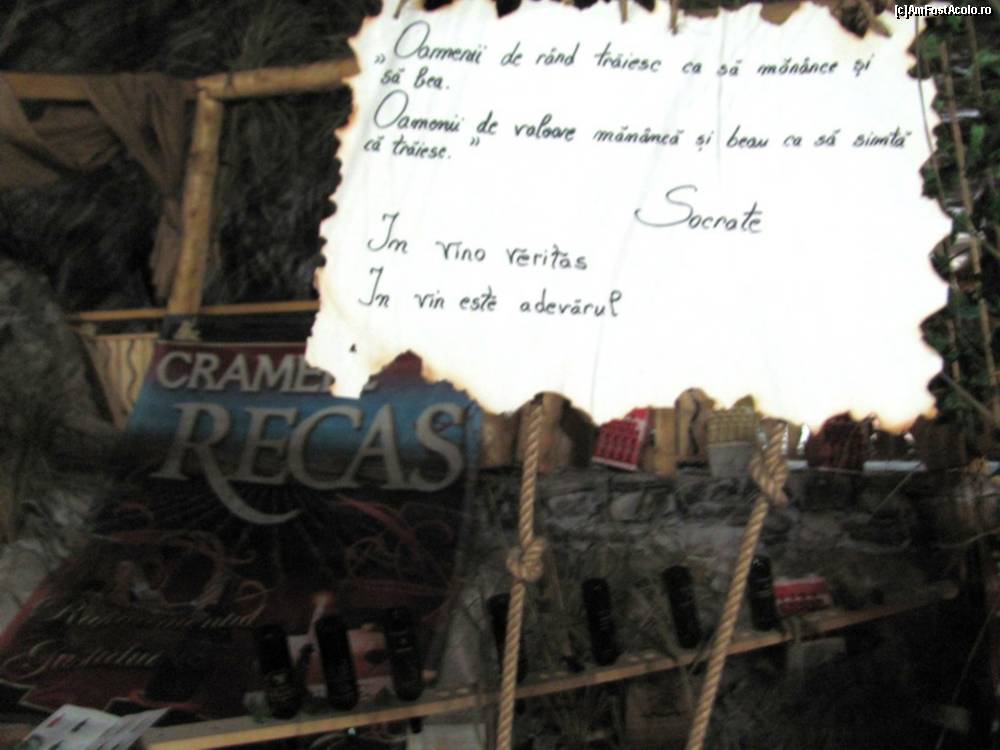 [c]AmFostAcolo.ro
„Oamenii de rând trăiesc ca să mănânce și
să bea.
Oamenii de valoare mănâncă și beau ca să simtă
că trăiesc.”
Socrate
In vino veritas
In vin este adevărul
CRAME
RECAS
Gustului